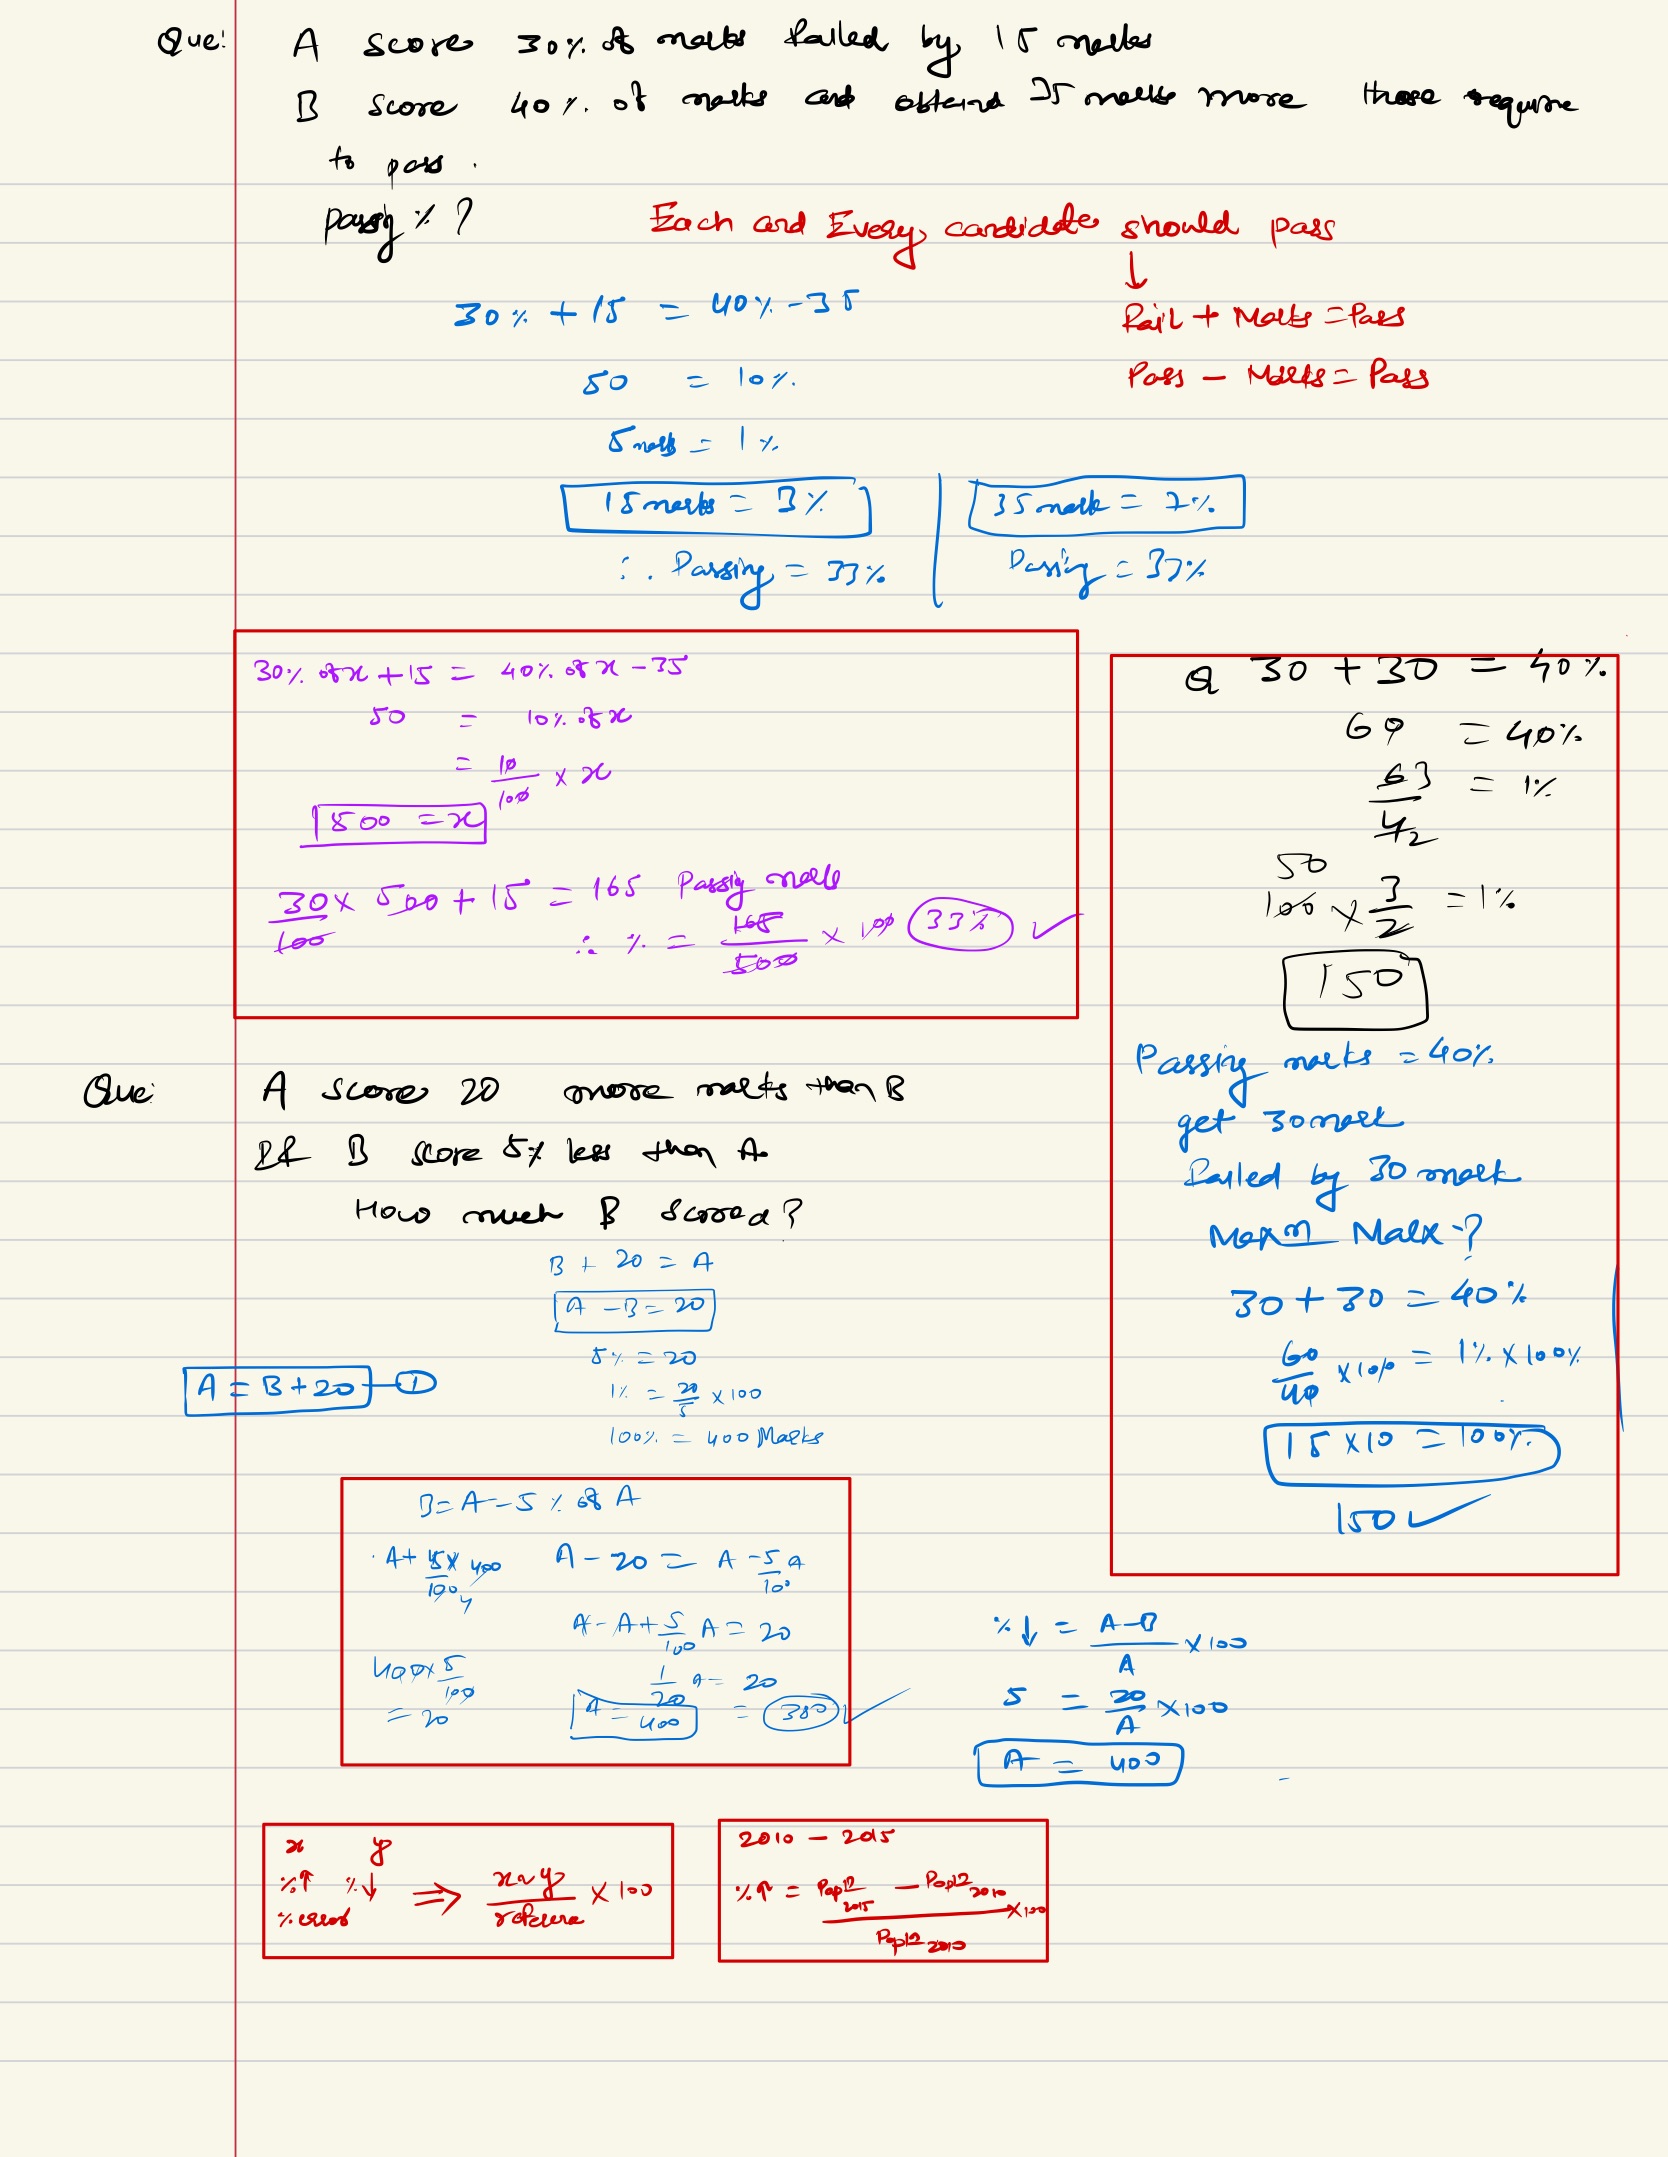 Que: A score 30% of marks failed by 15 marks
B score 40% of marks and obtaind 35 marks more those require
to pass.
Passg %?
Each and Every candidate should pass
↓
Fail + Marks = Pass
Pass - Marks = Pass
30% + 15 = 40% - 35
50 = 10%
5 marks = 1%
15 marks = 3%
∴ Passing = 33%
35 mark = 7%
Passing = 33%
30% of x + 15 = 40% of x - 35
50 = 10% of x
= 10/100 × x
500 = x
30/100 × 500 + 15 = 165 Passig marks
∴ % = 165/500 × 100 33% ✓
Q 30 + 30 = 40%
60 = 40%
63/42 = 1%
50
100 × 3/2 = 1%
150
Passing marks = 40%
get 30 mark
Failed by 30 mark
Maxm Marx?
30 + 30 = 40%
60/40 × 100 = 1% × 100%
15 × 10 = 100%
150 ✓
Que: A score 20 more marks than B
If B score 5% less than A.
How much B Scored?
B + 20 = A
A - B = 20
5% = 20
1% = 20/5 × 100
100% = 400 Marks
A = B + 20 - ①
B = A - 5% of A
A + 5 × 400/100
A - 20 = A - 5/100 A
A - A + 5/100 A = 20
1/20 A = 20
A = 400 = 380 ✓
400 × 5/100
= 20
% ↓ = A-B/A × 100
5 = 20/A × 100
A = 400
x y
% ↑ % ↓ ⇒ x~y/refrence × 100
% error
2010 - 2015
% ↑ = Popln 2015 - Popln 2010/Popln 2010 × 100